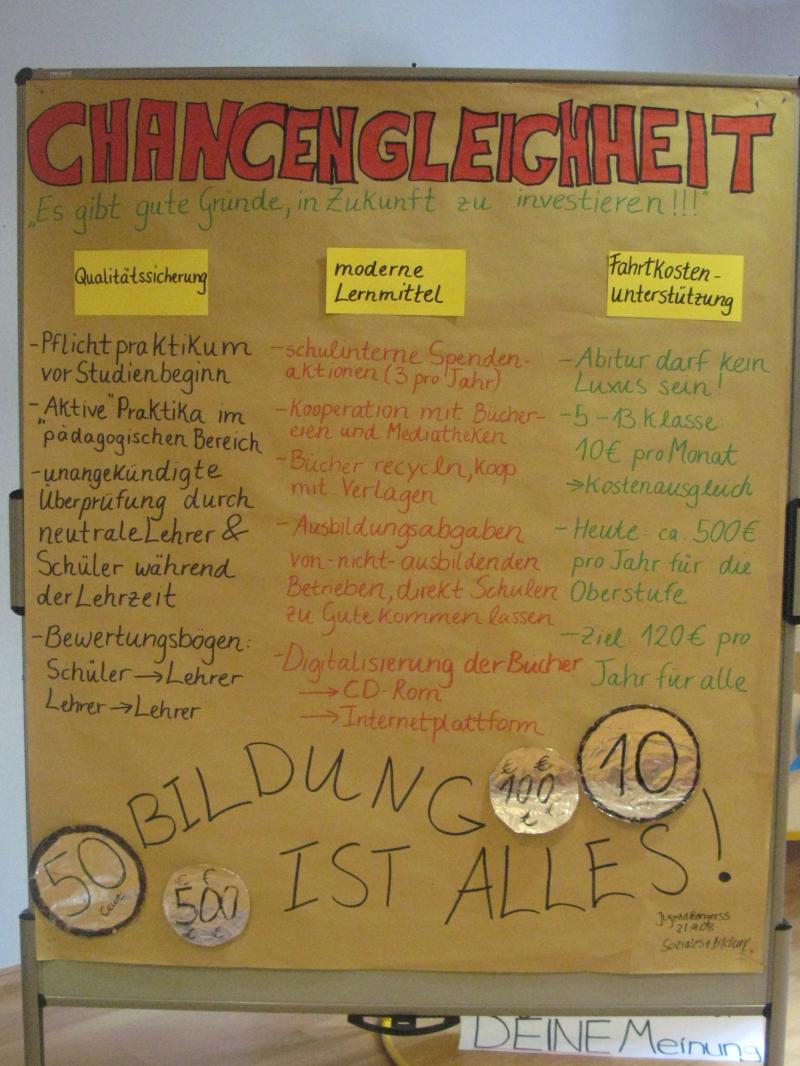 CHANCENGLEICHHEIT
„Es gibt gute Gründe, in Zukunft zu investieren!!!"
Qualitätssicherung
-Pflichtpraktikum
vor Studienbeginn
-„Aktive" Praktika im
pädagogischen Bereich
-unangekündigte
Überprüfung durch
neutrale Lehrer &
Schüler während
der Lehrzeit
-Bewertungsbögen:
Schüler→Lehrer
Lehrer→Lehrer
moderne
Lernmittel
-schulinterne Spenden-
aktionen (3 pro Jahr)
-Kooperation mit Büche-
reien und Mediatheken
-Bücher recyceln, koop
mit Verlagen
-Ausbildungsabgaben
von-nicht-ausbildenden
Betrieben, direkt Schulen
zu Gute kommen lassen
-Digitalisierung der Bücher
→CD-Rom
→Internetplattform
Fahrtkosten-
unterstützung
-Abitur darf kein
Luxus sein!
-5-13. Klasse:
10€ pro Monat
→Kostenausgleich
-Heute: ca. 500€
pro Jahr für die
Oberstufe
-Ziel: 120€ pro
Jahr für alle
BILDUNG
IST ALLES!
50
Cent
€ €
500
€ €
€ €
100
€ €
10
Jugendkongress
21.9.08
Soziales & Bildung
DEINE Meinung